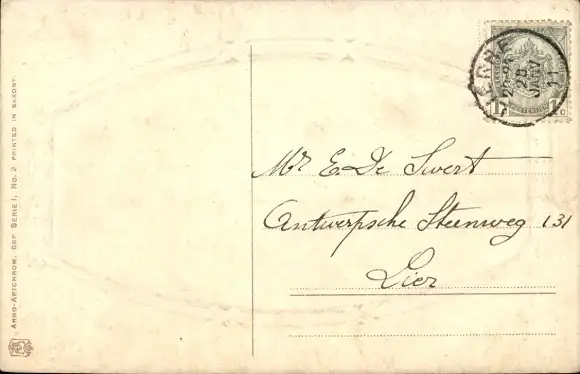 ARNO-ARTCHROM. GSF. SERIE I, NO. 2 PRINTED IN SAXONY.
28 JANVI
11
1 1
Mr E. De Swert
Antwerpsche Steenweg 131
Lier